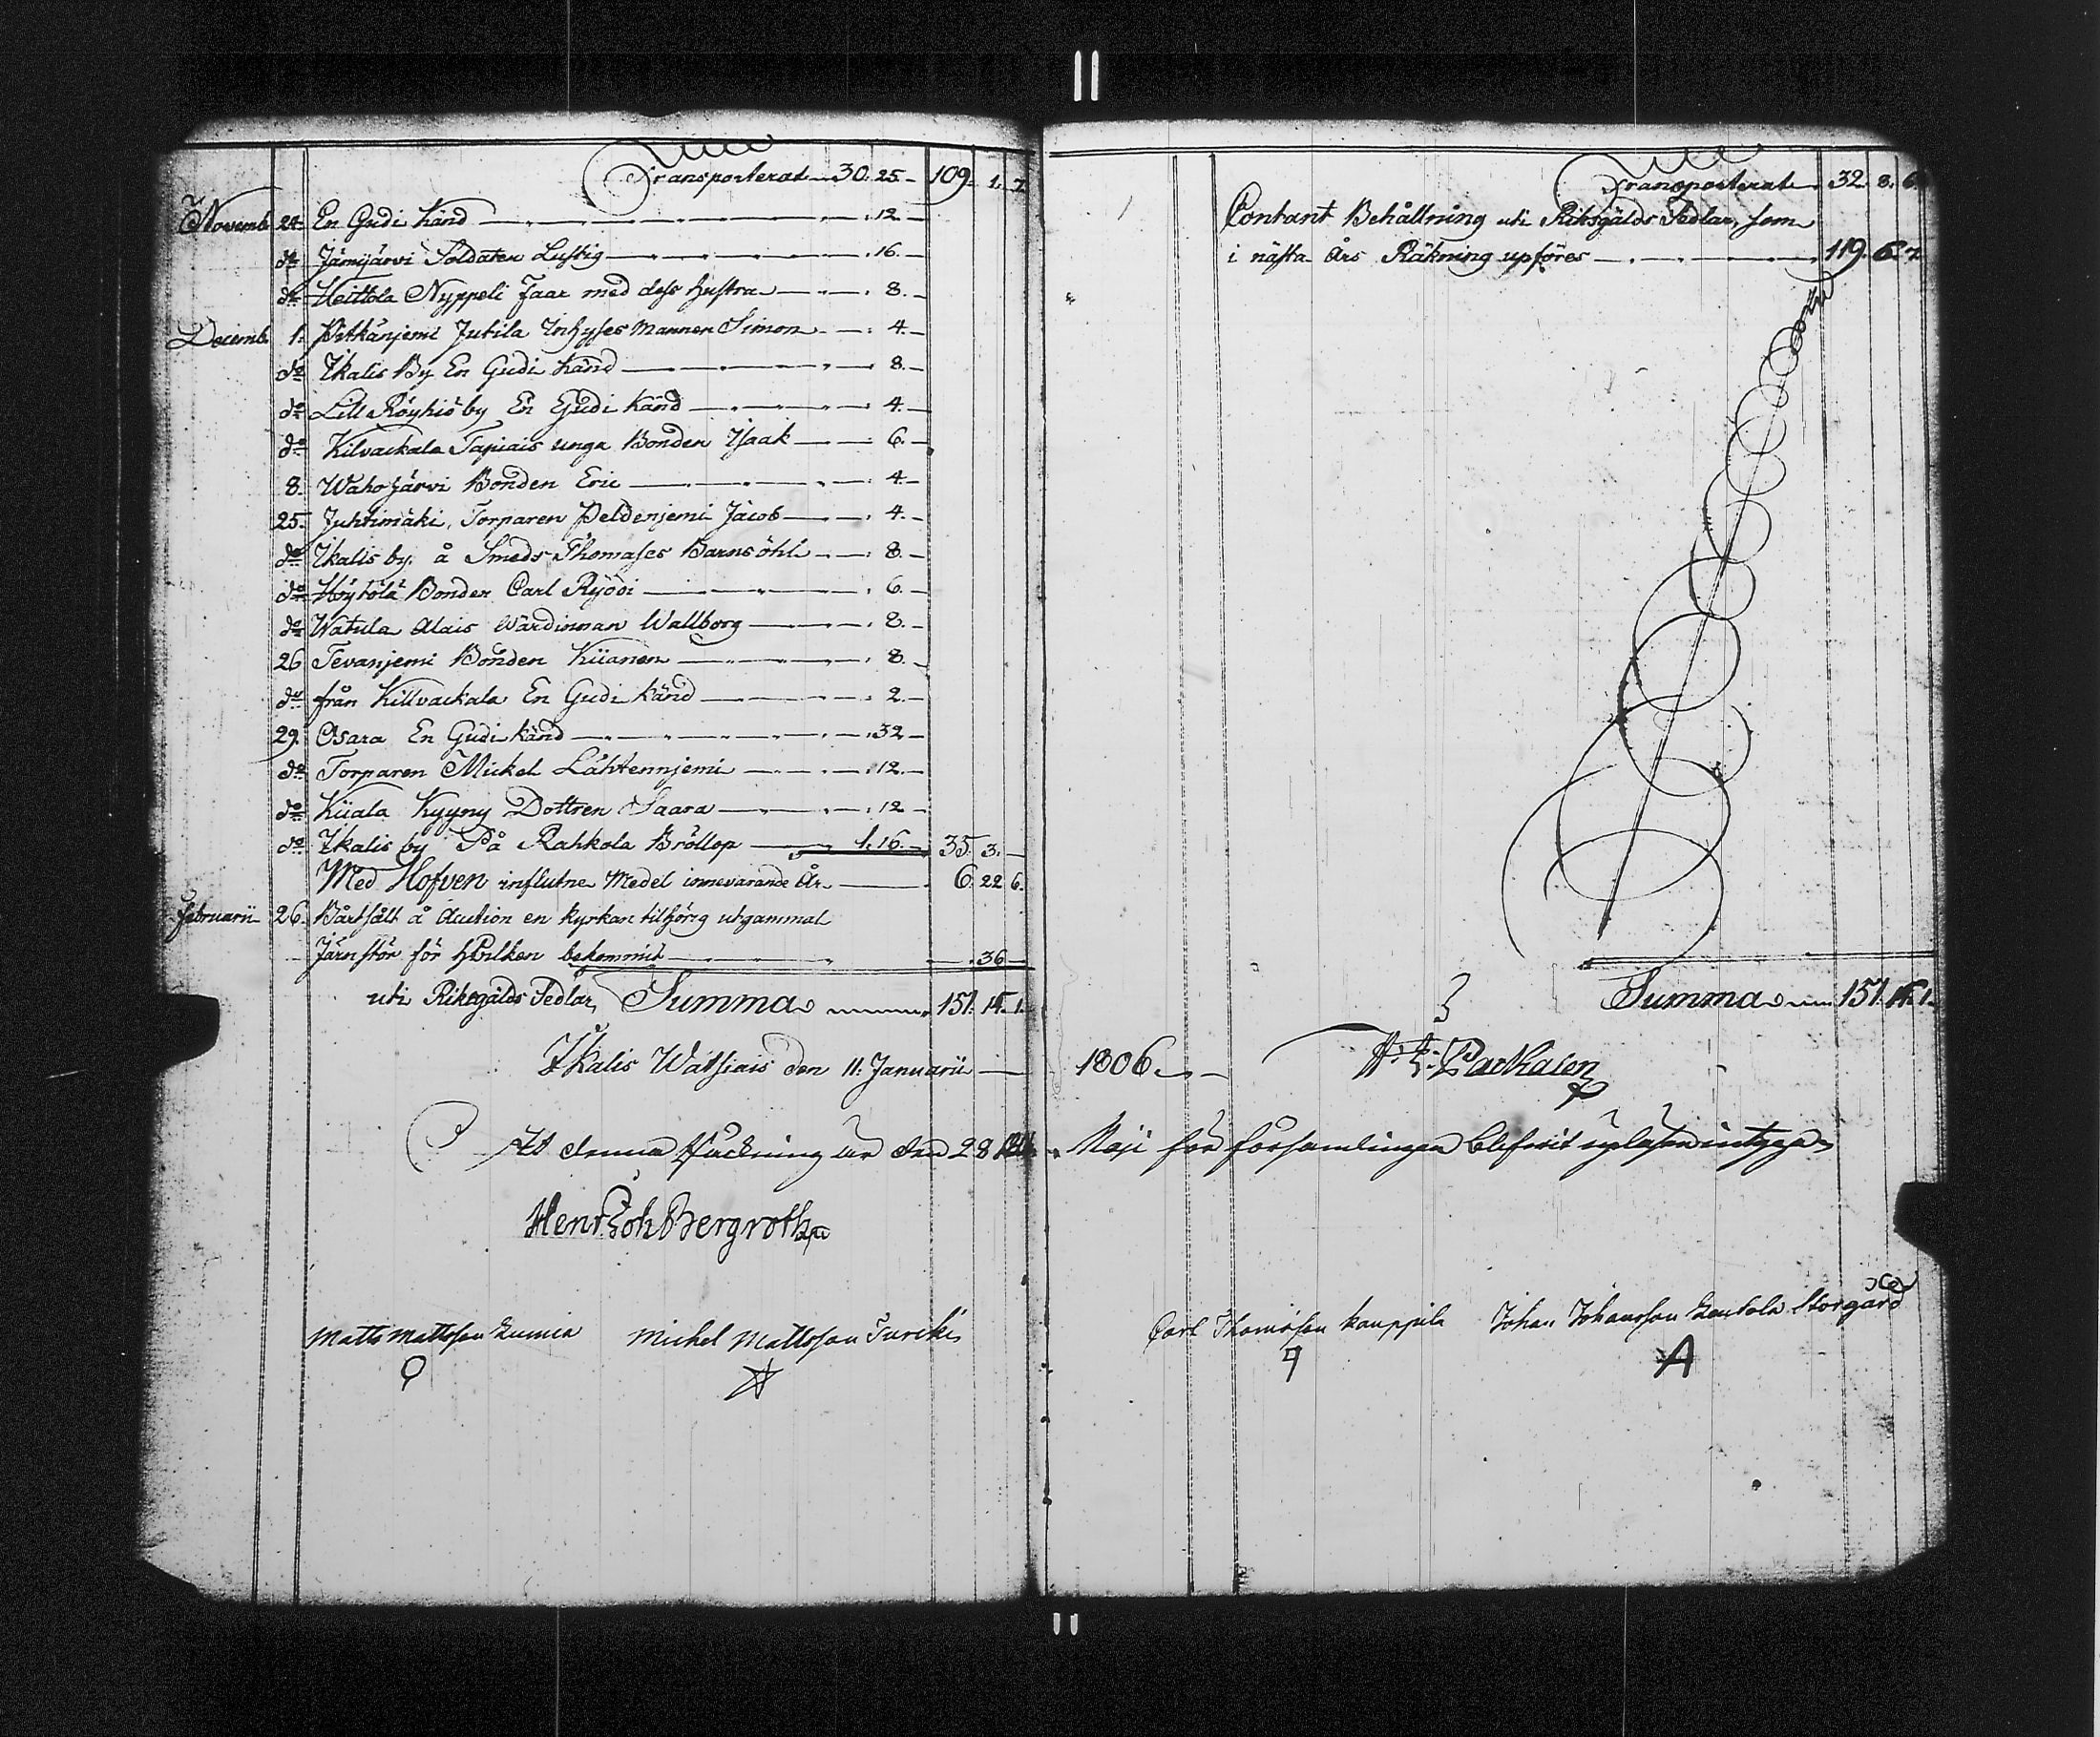 Transporterat 30. 25. 109. 1. 7
Novemb. 24. En Gudi känd 12
do Jämijärvi Soldaten Lustig 16.
do Heittola Nyppeli Faar med dess hustra 8.
Decemb. 1. Pitkänjemi Jutila Inhyses Mannen Simon 4.
do Ikalis By En Gudi känd 8.
do Lill Röyhiö by En Gudi känd 4.
do Kilvackala Tapiais unga Bonden Isaak 6.
8. Waho Järvi Bonden Eric 4.
25. Juhtimäki, Torparen Peldenjemi Jacob 4.
do Ikalis by å Smeds Thomases Barnsöhl 8.
do Höytölä Bonden Carl Ryöði 6.
do Watula Alais Wärdinnan Wallborg 8.
26 Tevanjemi Bonden Kiianen 8.
do från Killvackala En Gudi känd 2.
29. Osara En Gudi känd 32
do Torparen Mickel Lähtennjemi 12.
do Kiiala Kyyny Dottren Saara 12
do Ikalis by På Rahkola Bröllop 1. 16. 35. 3.
Med Hofven influtne Medel innevarande År 6. 22 6.
Februarii 26. Bårtsålt å Auction en kyrkan tilhörig utgammal
Järnstör för hvilken bekommit 36
uti Riksgälds Sedlar, Summa 151. 15. 1.
Ikalis Watsiais den 11. Januarii
At denna Räckning är den 28
Henr Joh Bergroth
Matts Mattsson Michel Mattsson Turcki
Transporterat 32. 8. 6
Contant Behållning uti Riksgälds Sedlar, som
i nästa Års Räkning upföres 119. 6. 7
Summa 151. 15. 1.
1806.
Maji för församlingen blifvit upläsen intygga
Carl Thomasson Kauppila Johan Johansson Storgård